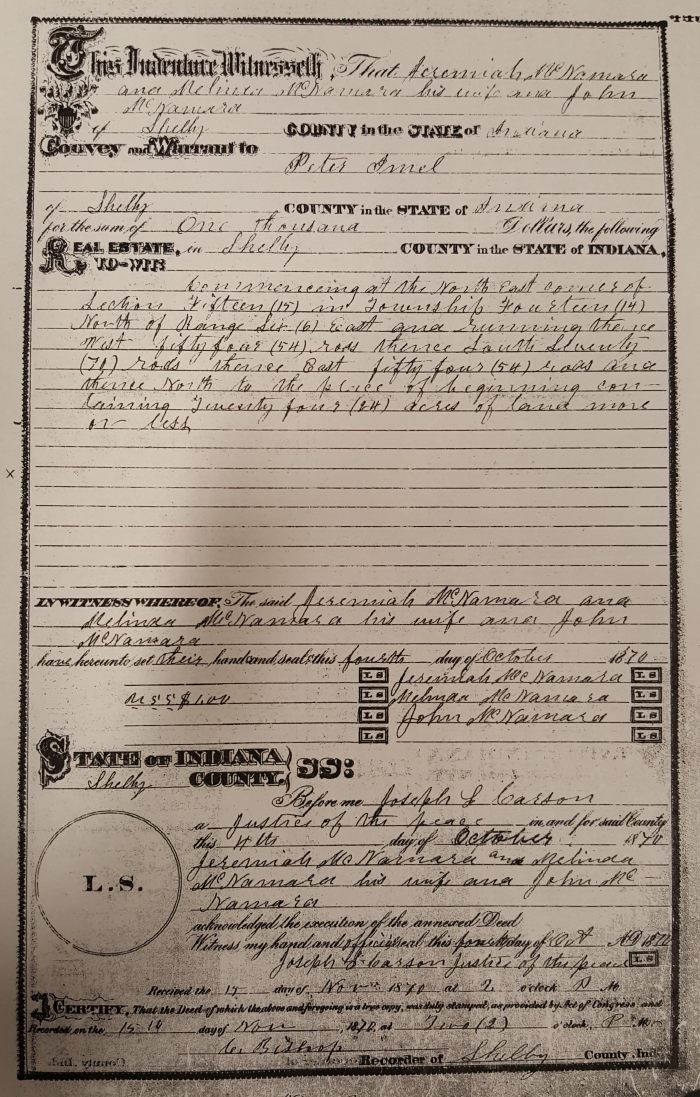 This Indenture Witnesseth, That Jeremiah McNamara
and Melinda McNamara his wife and John
McNamara
of Shelby COUNTY in the STATE of Indiana
Convey and Warrant to
Peter Imel
of Shelby COUNTY in the STATE of Indiana
for the sum of One thousand Dollars, the following
REAL ESTATE, in Shelby COUNTY in the STATE OF INDIANA,
TO-WIT:
Commencing at the North East corner of
Section Fifteen (15) in Township Fourteen (14)
North of Range Six (6) East and running thence
West fifty four (54) rods thence South Seventy
(70) rods thence East fifty four (54) rods and
thence North to the place of beginning con-
taining Twenty four (24) acres of land more
or less
IN WITNESS WHEREOF, The said Jeremiah McNamara and
Melinda McNamara his wife and John
McNamara
have hereunto set their hands and seals this fourth day of October 1870
LS Jeremiah McNamara LS
$1.00 LS Melinda McNamara LS
LS John McNamara LS
LS LS
STATE OF INDIANA
Shelby COUNTY, SS:
Before me Joseph L Carson
a Justice of the peace in and for said County
this 4th day of October 1870
Jeremiah McNamara and Melinda
L.S. McNamara his wife and John Mc
Namara
acknowledged the execution of the annexed Deed
Witness my hand and official seal this fourth day of Oct AD 1870
Joseph L Carson Justice of the peace LS
Received the 15 day of Nov 1870 at 2 o'clock P M
I CERTIFY, That the Deed of which the above and foregoing is a true copy, was duly stamped, as provided by Act of Congress and
Recorded on the 15 day of Nov 1870, at Two (2) o'clock, P. M.
Bishop
Recorder of Shelby County, Ind.